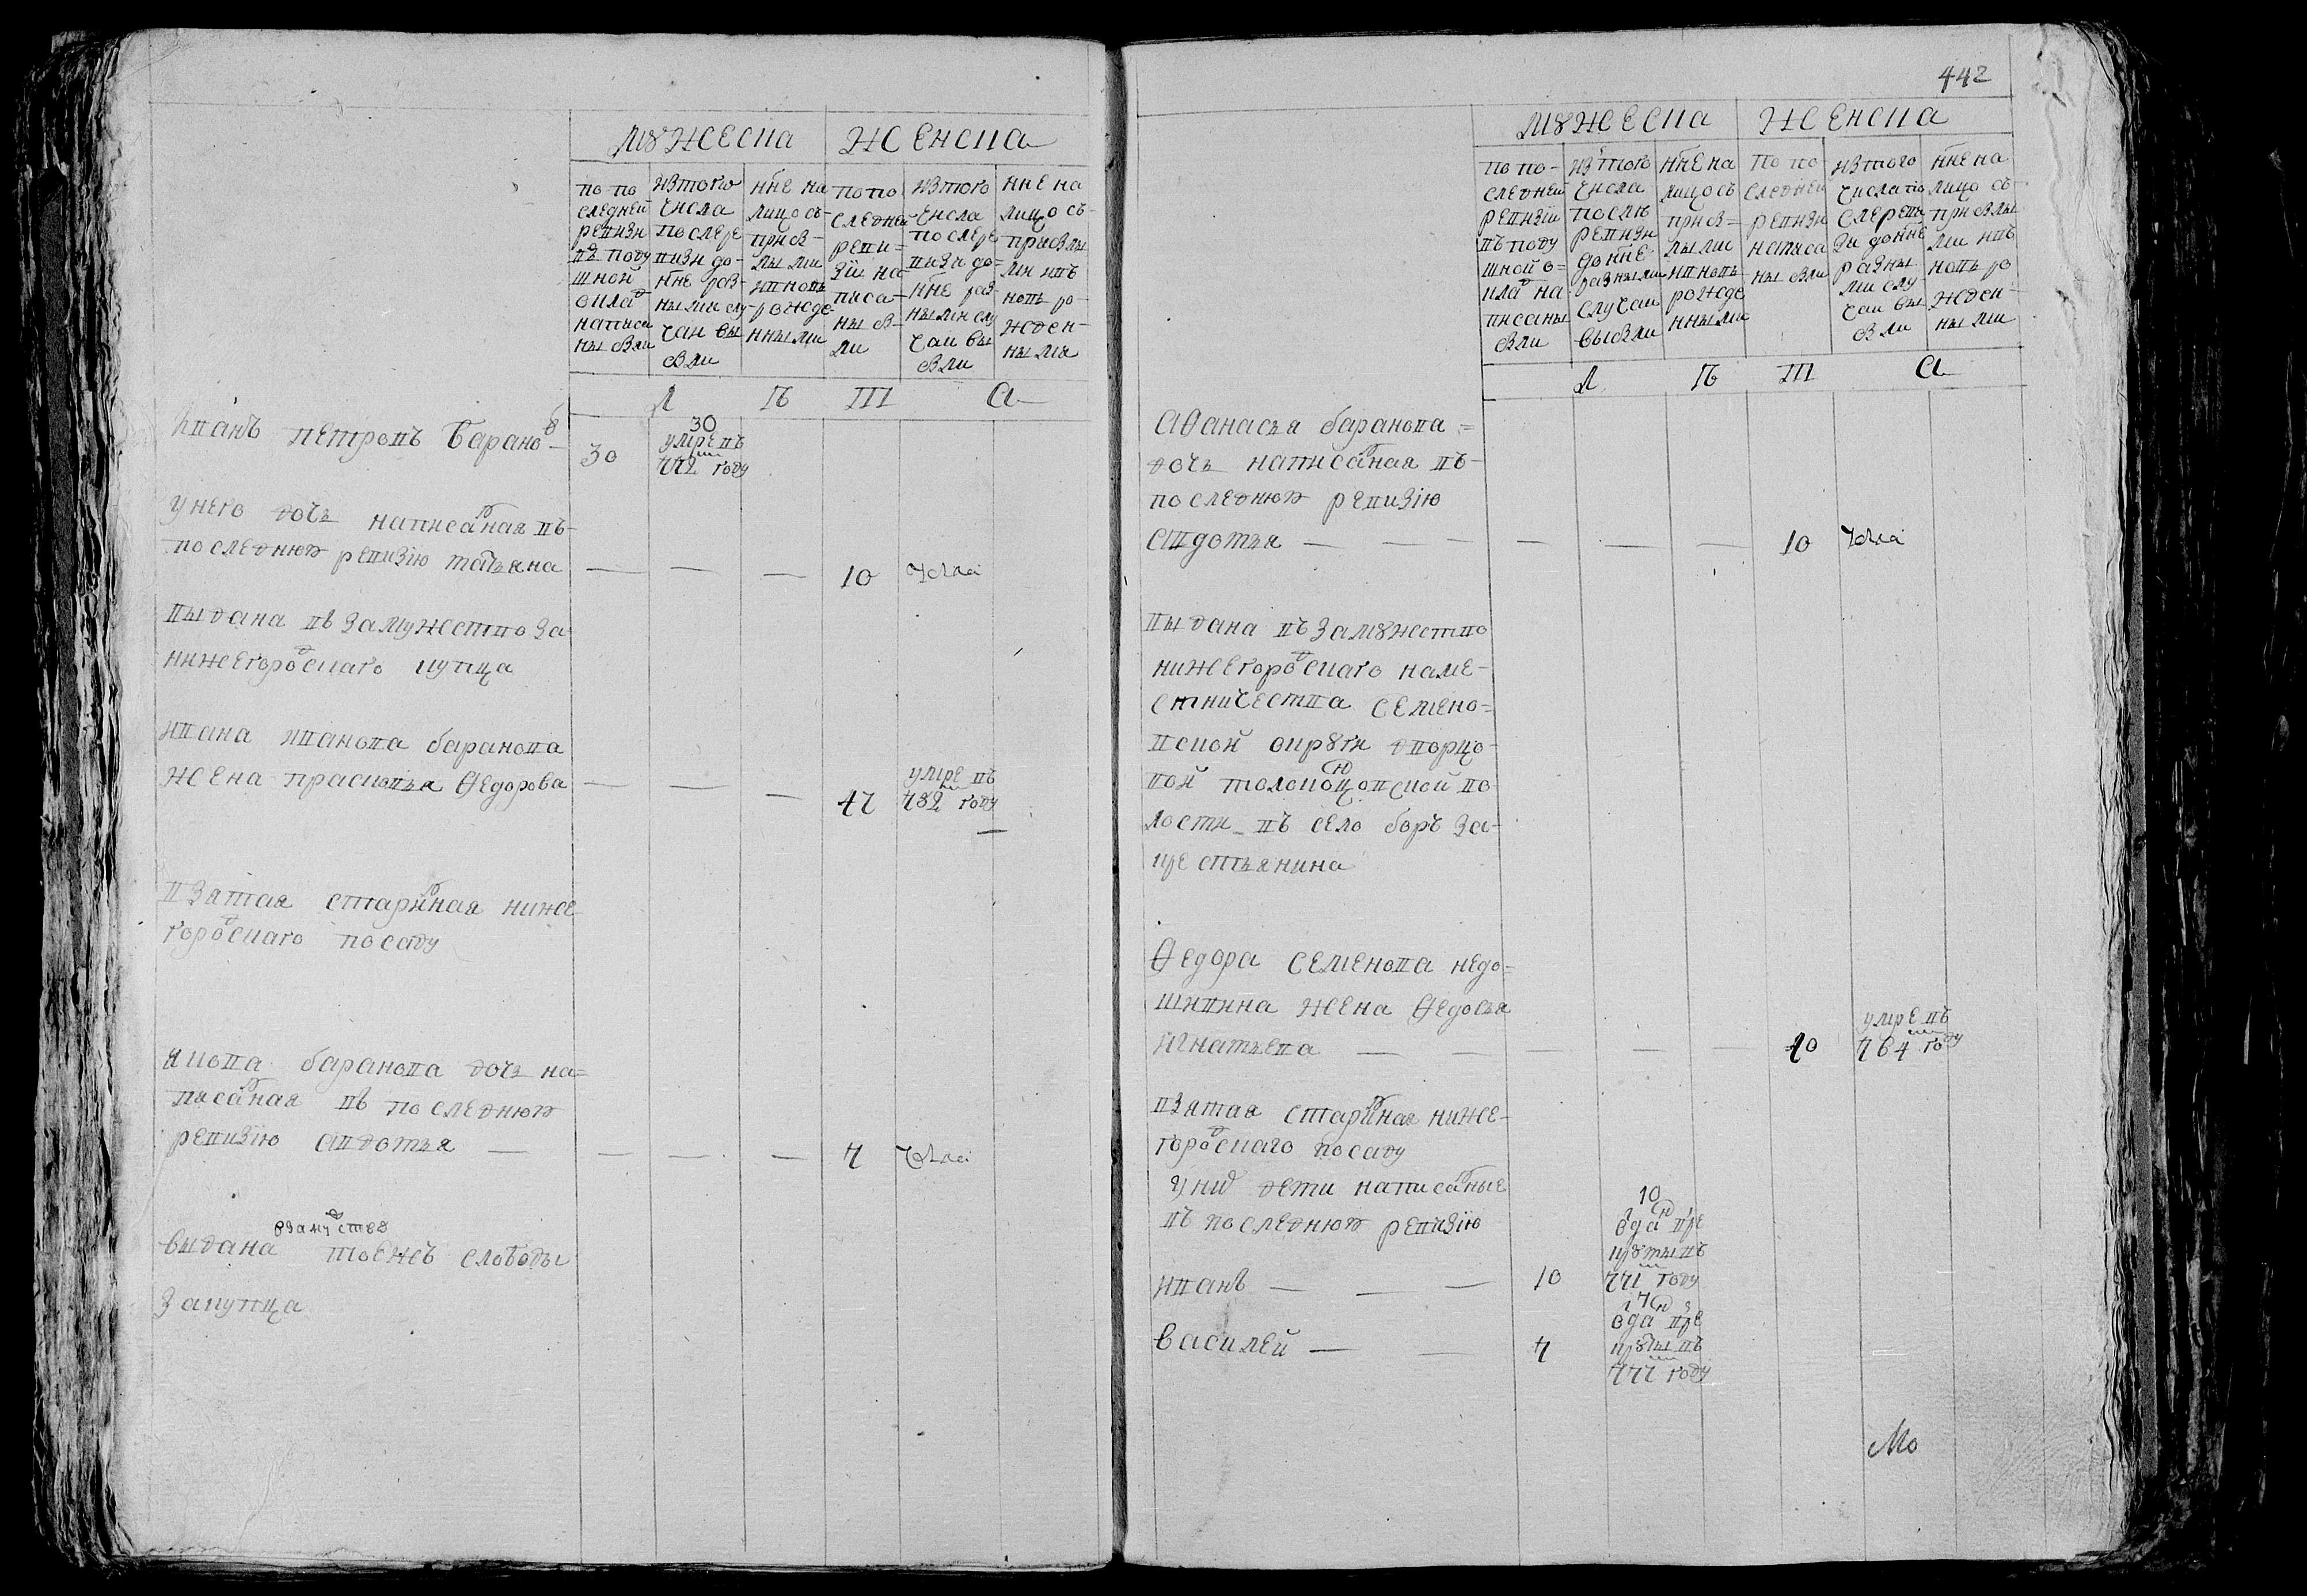 мужеска женска
по по
следней
ревизи
въ поду
шной
оклад
написа
ны были
изтого
числа
послере
визи до
нне раз
ными слу
чаи вы
были
нне на
лицо съ
прибы
лыми
ивновь
рожде
нными
по по
следней
реви=
зiи на
писа
ны бы
ли
изтого
числа
послере
визи до=
нне раз
ными слу
чаи вы
были
нне на
лицо съ
прибылы
ми ивъ
новь ро
жден
ными
Л В Ш А
Иванъ петровъ баранов 30 30
умре въ
772 году
унего дочь написаная въ
последнюю ревизiю татьяна — — — 10
выдана въ замужество за
нижегородскаго купца
Ивана иванова баранова
жена прасковья Ѳедорова — — — 47 умре въ
782 году
взятая старинная ниже
городскаго посаду
якова баранова дочь на=
писаная въ последнюю
ревизiю авдотья — — — — 7
взамуство
выдана тоежъ слободы
закупца
442
мужеска женска
по по
следней
ревизiи
въ поду
шной о=
клад на
писаны
были
изтого
числа
после
ревизи
донне
разными
случаи
выбыли
нне на
лицо съ
прибы=
лыми
ивновь
рожде
нными
по по
следней
ревизи
написа
ны были
изтого
числа по
слереви
зи донне
разны
ми слу
чаи вы
были
нне на
лицо съ
прибылы
ми ивъ
новь ро
жден
ными
Л В Ш А
Аѳанасья баранова =
дочь написаная въ
последнюю ревизiю
Авдотья — — — — — — 10
выдана въ замужство
нижегородскаго наме
стничества семено=
вской округи дворцо
вой толоконцовской во
лости въ село боръ за
крестьянина
Ѳедора семенова недо=
шивина жена Ѳедосья
Игнатьева — — — — — 40 умре въ
764 году
взятая старинная ниже
городскаго посаду
у них дети написаные
въ последнюю ревизiю
иванъ — — — 10 10
отда в ре
круты въ
771 году
василей — — 7 7
отда в ре
круты въ
777 году
Мо